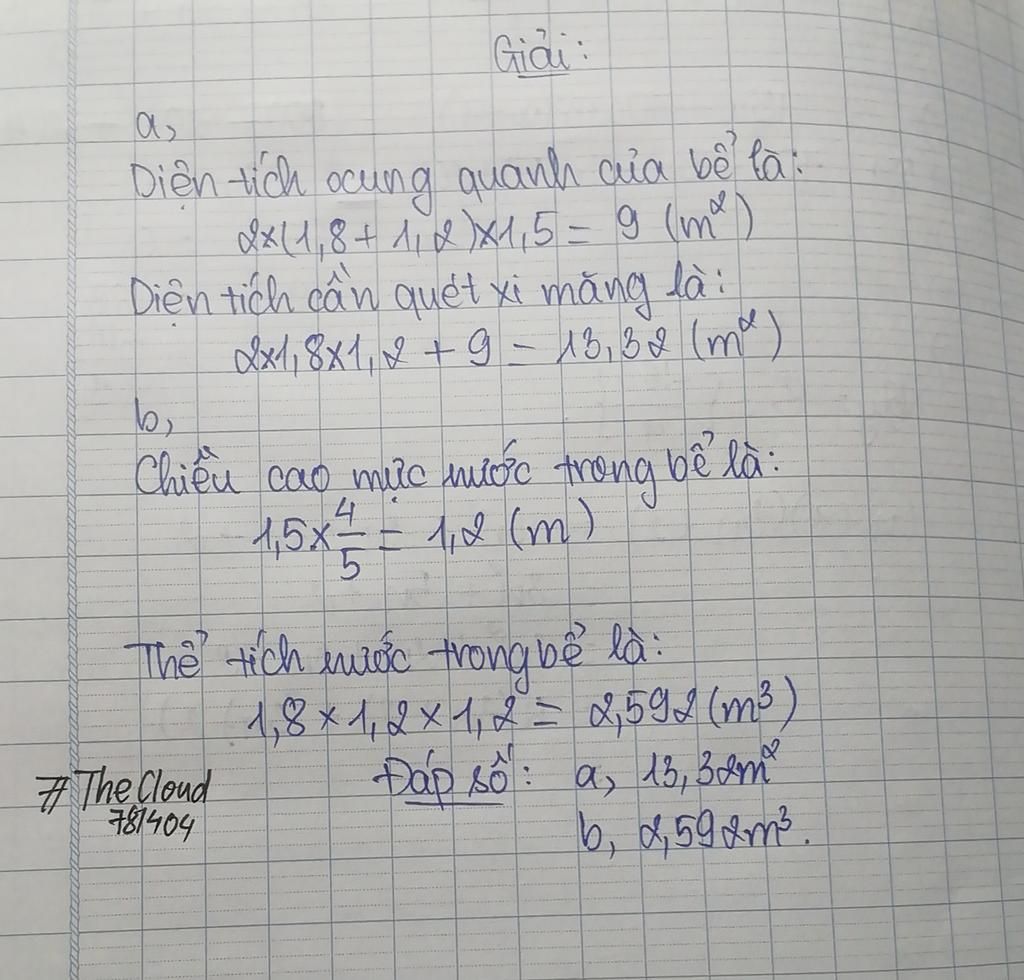 Giải:
a,
Diện tích xung quanh của bể là:
2×(1,8 + 1,2)×1,5 = 9 (m²)
Diện tích cần quét xi măng là:
2×1,8×1,2 + 9 = 13,32 (m²)
b,
Chiều cao mực nước trong bể là:
1,5 × 4/5 = 1,2 (m)
Thể tích nước trong bể là:
1,8 × 1,2 × 1,2 = 2,592 (m³)
Đáp số: a, 13,32m²
b, 2,592m³.
# The Cloud
781404